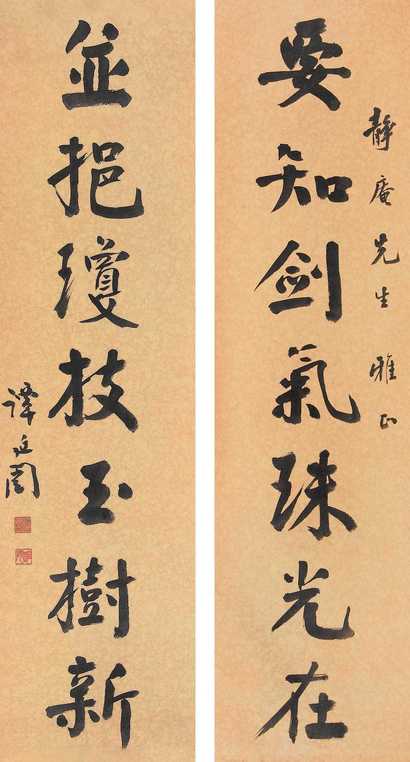 靜庵先生雅正
要知劍氣珠光在
並挹瓊枝玉樹新
譚延闓